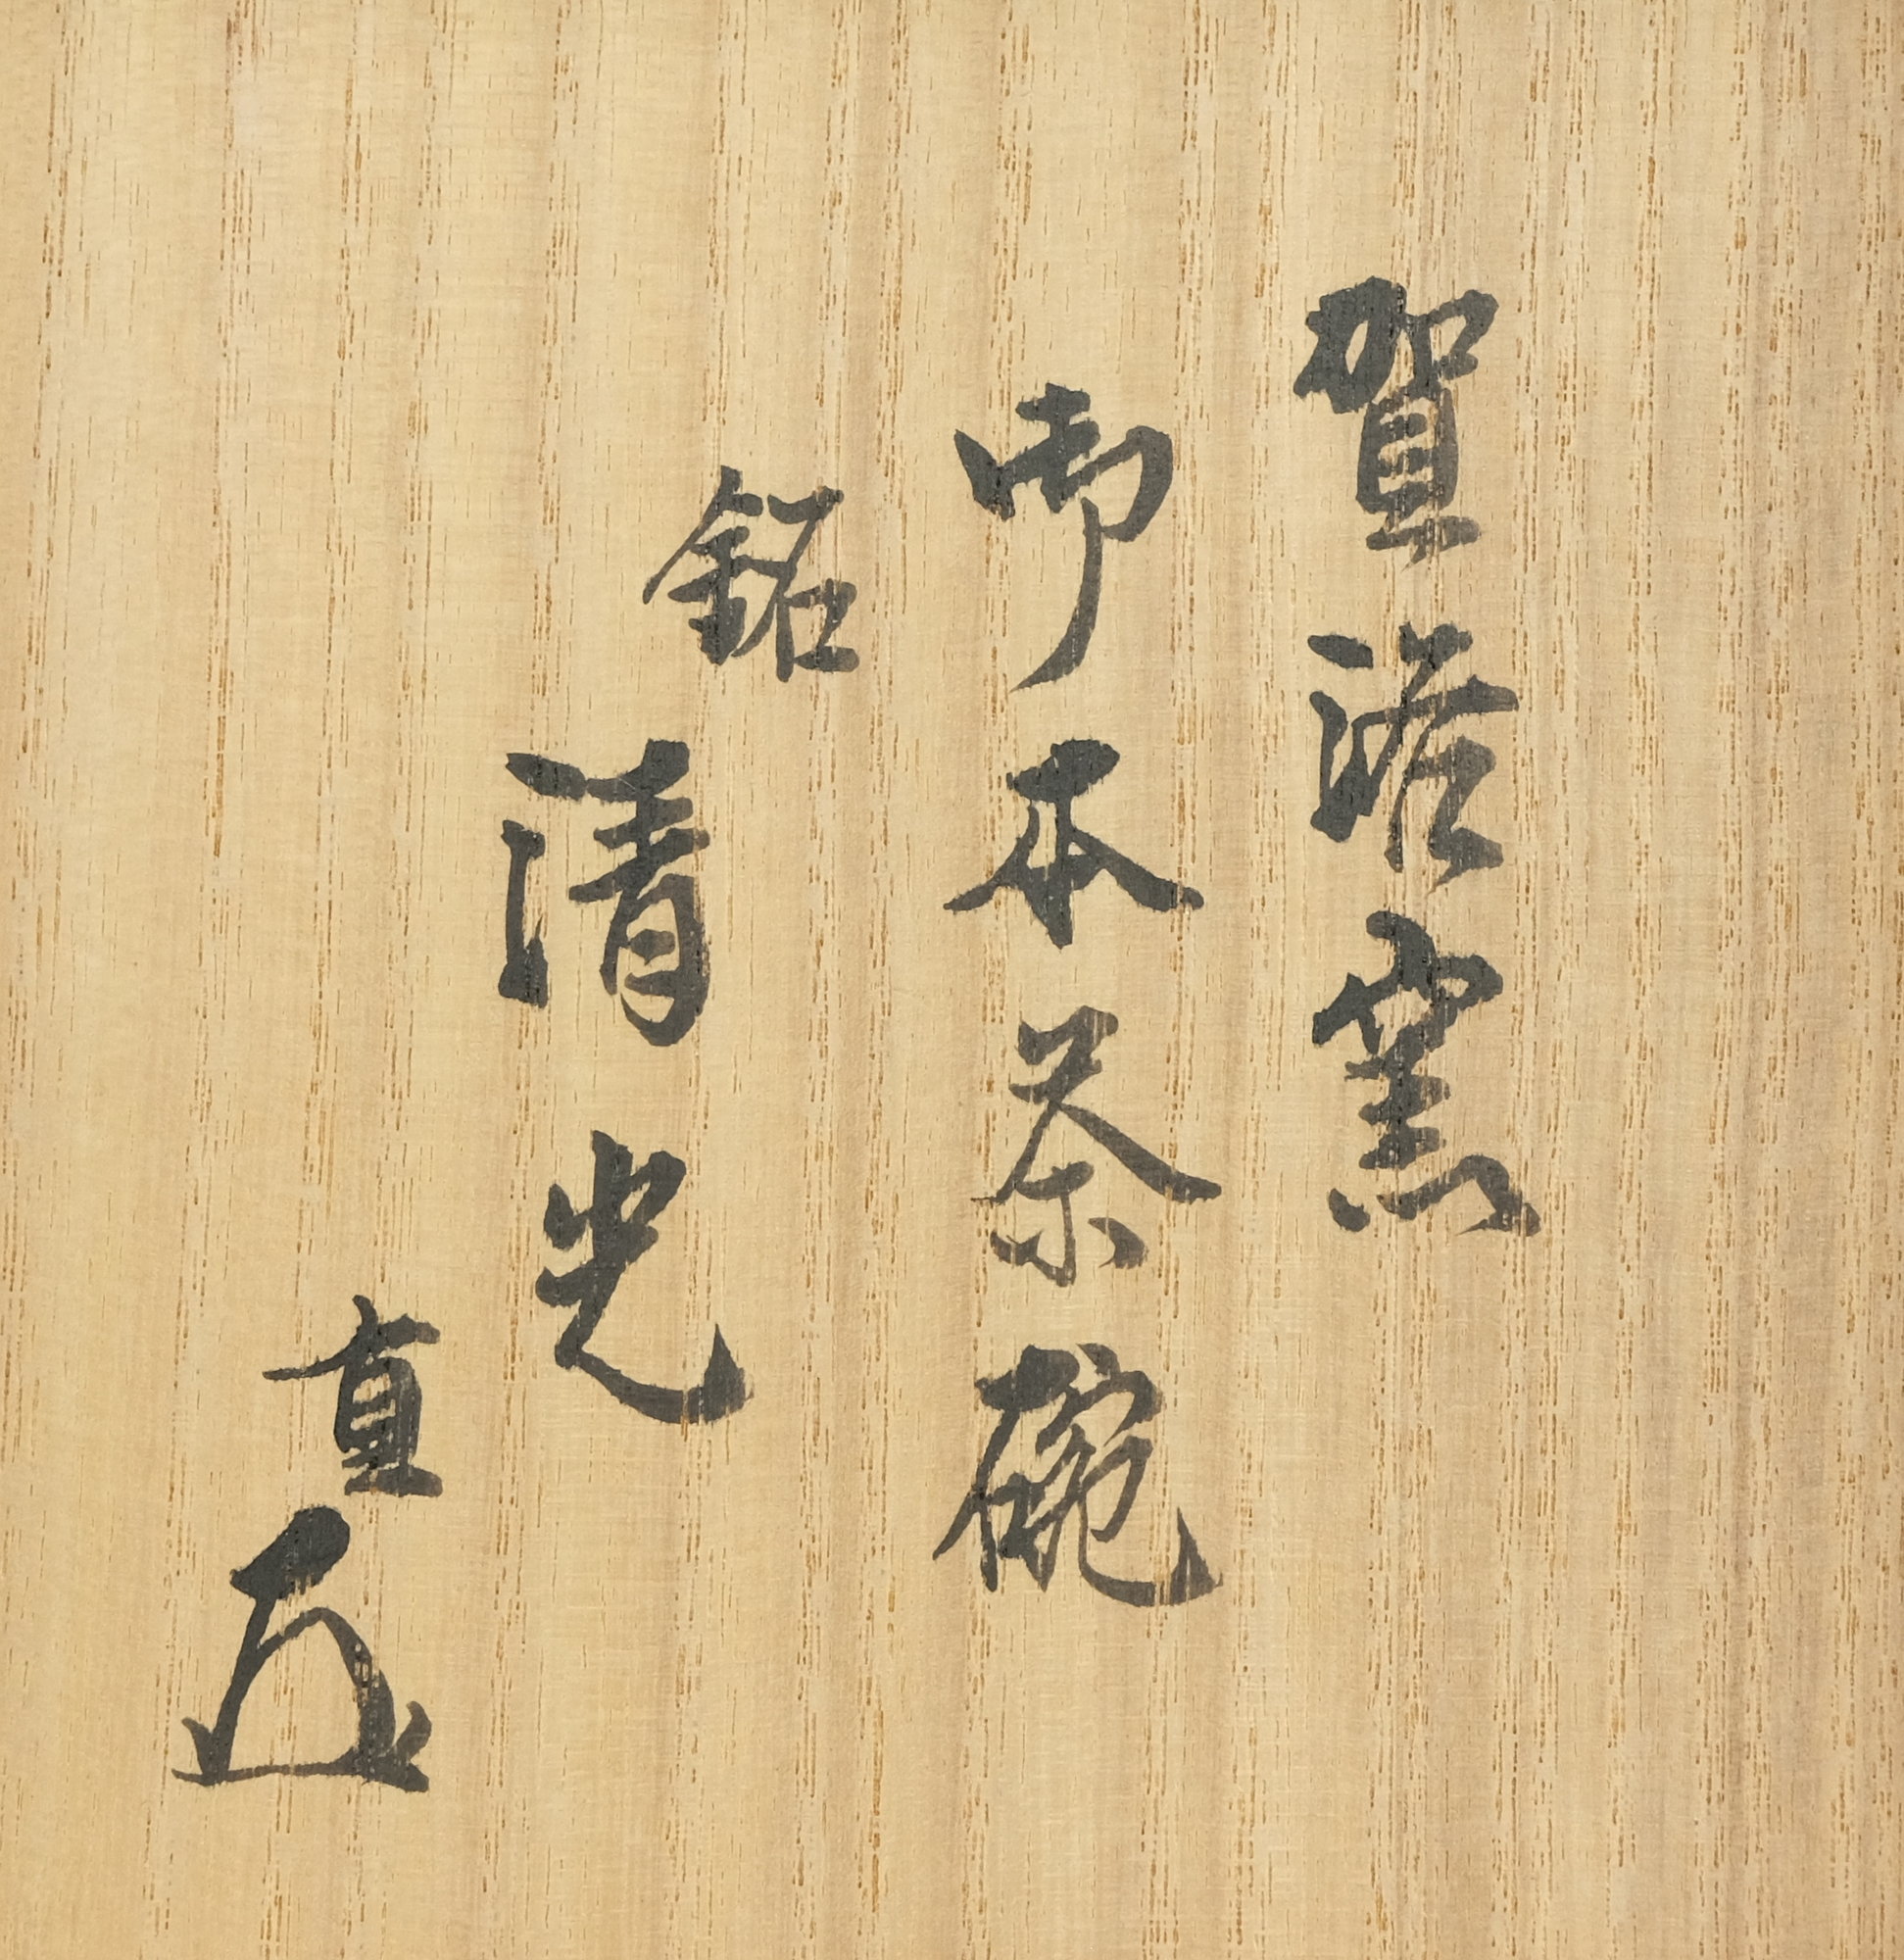 賀浩窯
御本茶碗
銘
清光
直